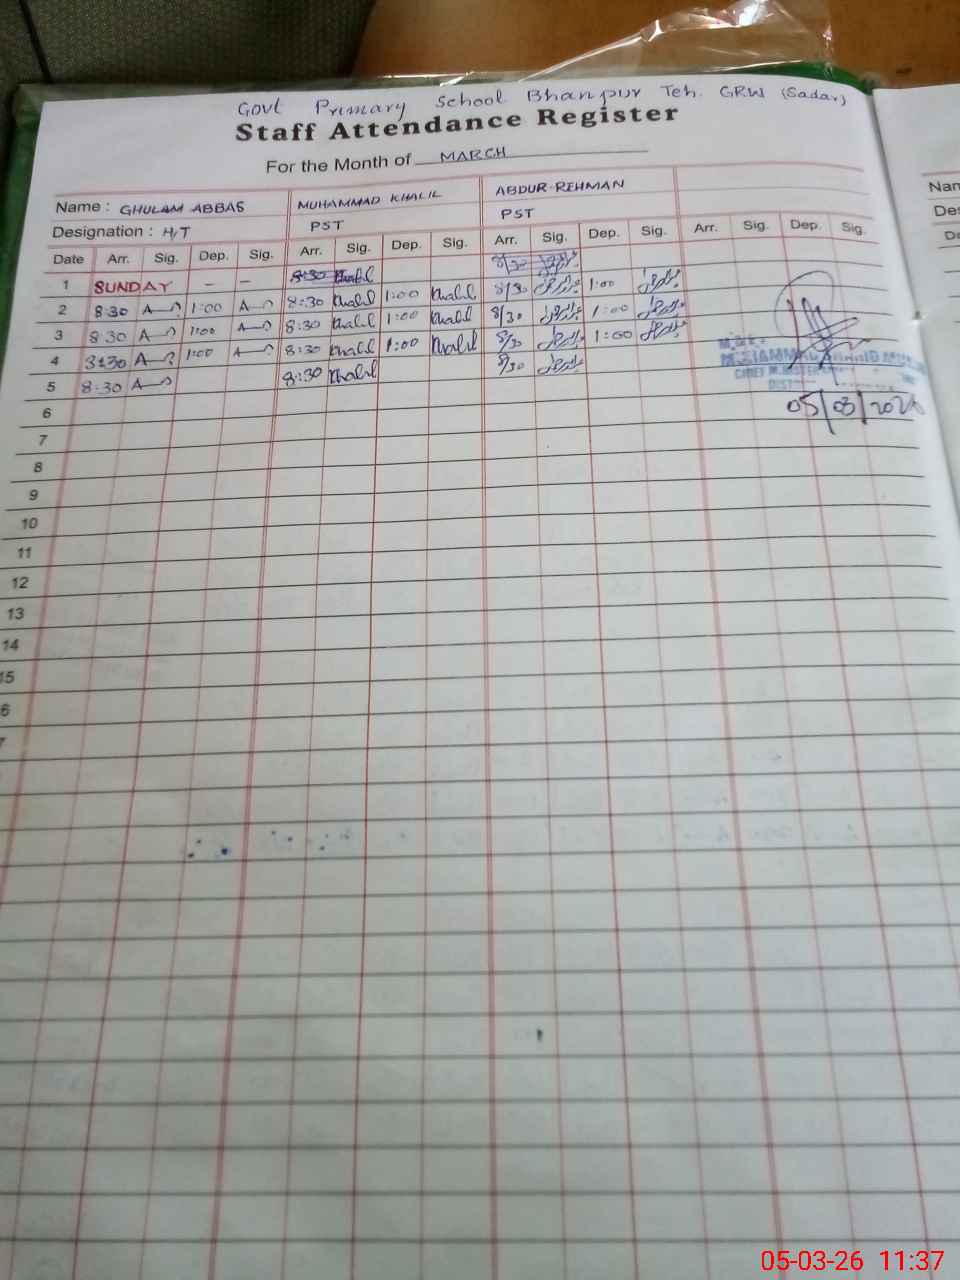 Govt Primary School Bhanpur Teh. GRW (Sadar)
Staff Attendance Register
For the Month of MARCH
Name : GHULAM ABBAS MUHAMMAD KHALIL ABDUR-REHMAN
Designation : H/T PST PST
Date Arr. Sig. Dep. Sig. Arr. Sig. Dep. Sig. Arr. Sig. Dep. Sig. Arr. Sig. Dep. Sig.
1 SUNDAY - - 8:30 Khalil 8/30
2 8:30 1:00 8:30 Khalil 1:00 Khalil 8/30 1:00
3 8:30 1:00 8:30 Khalil 1:00 Khalil 8/30 1:00
4 8:30 1:00 8:30 Khalil 1:00 Khalil 8/30 1:00
5 8:30 8:30 Khalil 8/30
05/03/2026
6
7
8
9
10
11
12
13
14
15
6
7
Nan
Des
Da
05-03-26 11:37